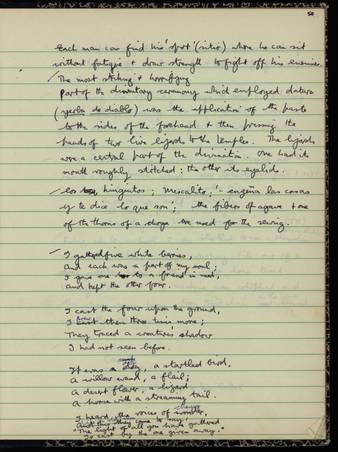 50
Each man can find his 'spot' (sitio) where he can sit
without fatigue + draw strength to fight off his enemies.
The most striking + horrifying
part of the divinatory ceremony which employed datura
(yerba de diablo) was the application of the paste
to the sides of the forehead + then pressing the
heads of two live lizards to the temples. The lizards
were a central part of the divination. One had its
mouth roughly stitched; the other its eyelids.
honguitos; Mescalito, 'enseña las cosas
y te dice lo que son'; the fibers of agave + one
of the thorns of a choya are used for the sewing.
I gathered five white berries,
And each was a part of my soul;
I gave one to a friend in need,
And kept the other four.
I cast the four upon the ground,
I then three times more;
They traced a creature's shadow
I had not seen before.
It was a , a startled bird,
A willow wand, a flail;
A desert flower, a lizard
A horse with a streaming tail.
I heard the voices of
"The light of all you have gathered
Is cast by the one given away."